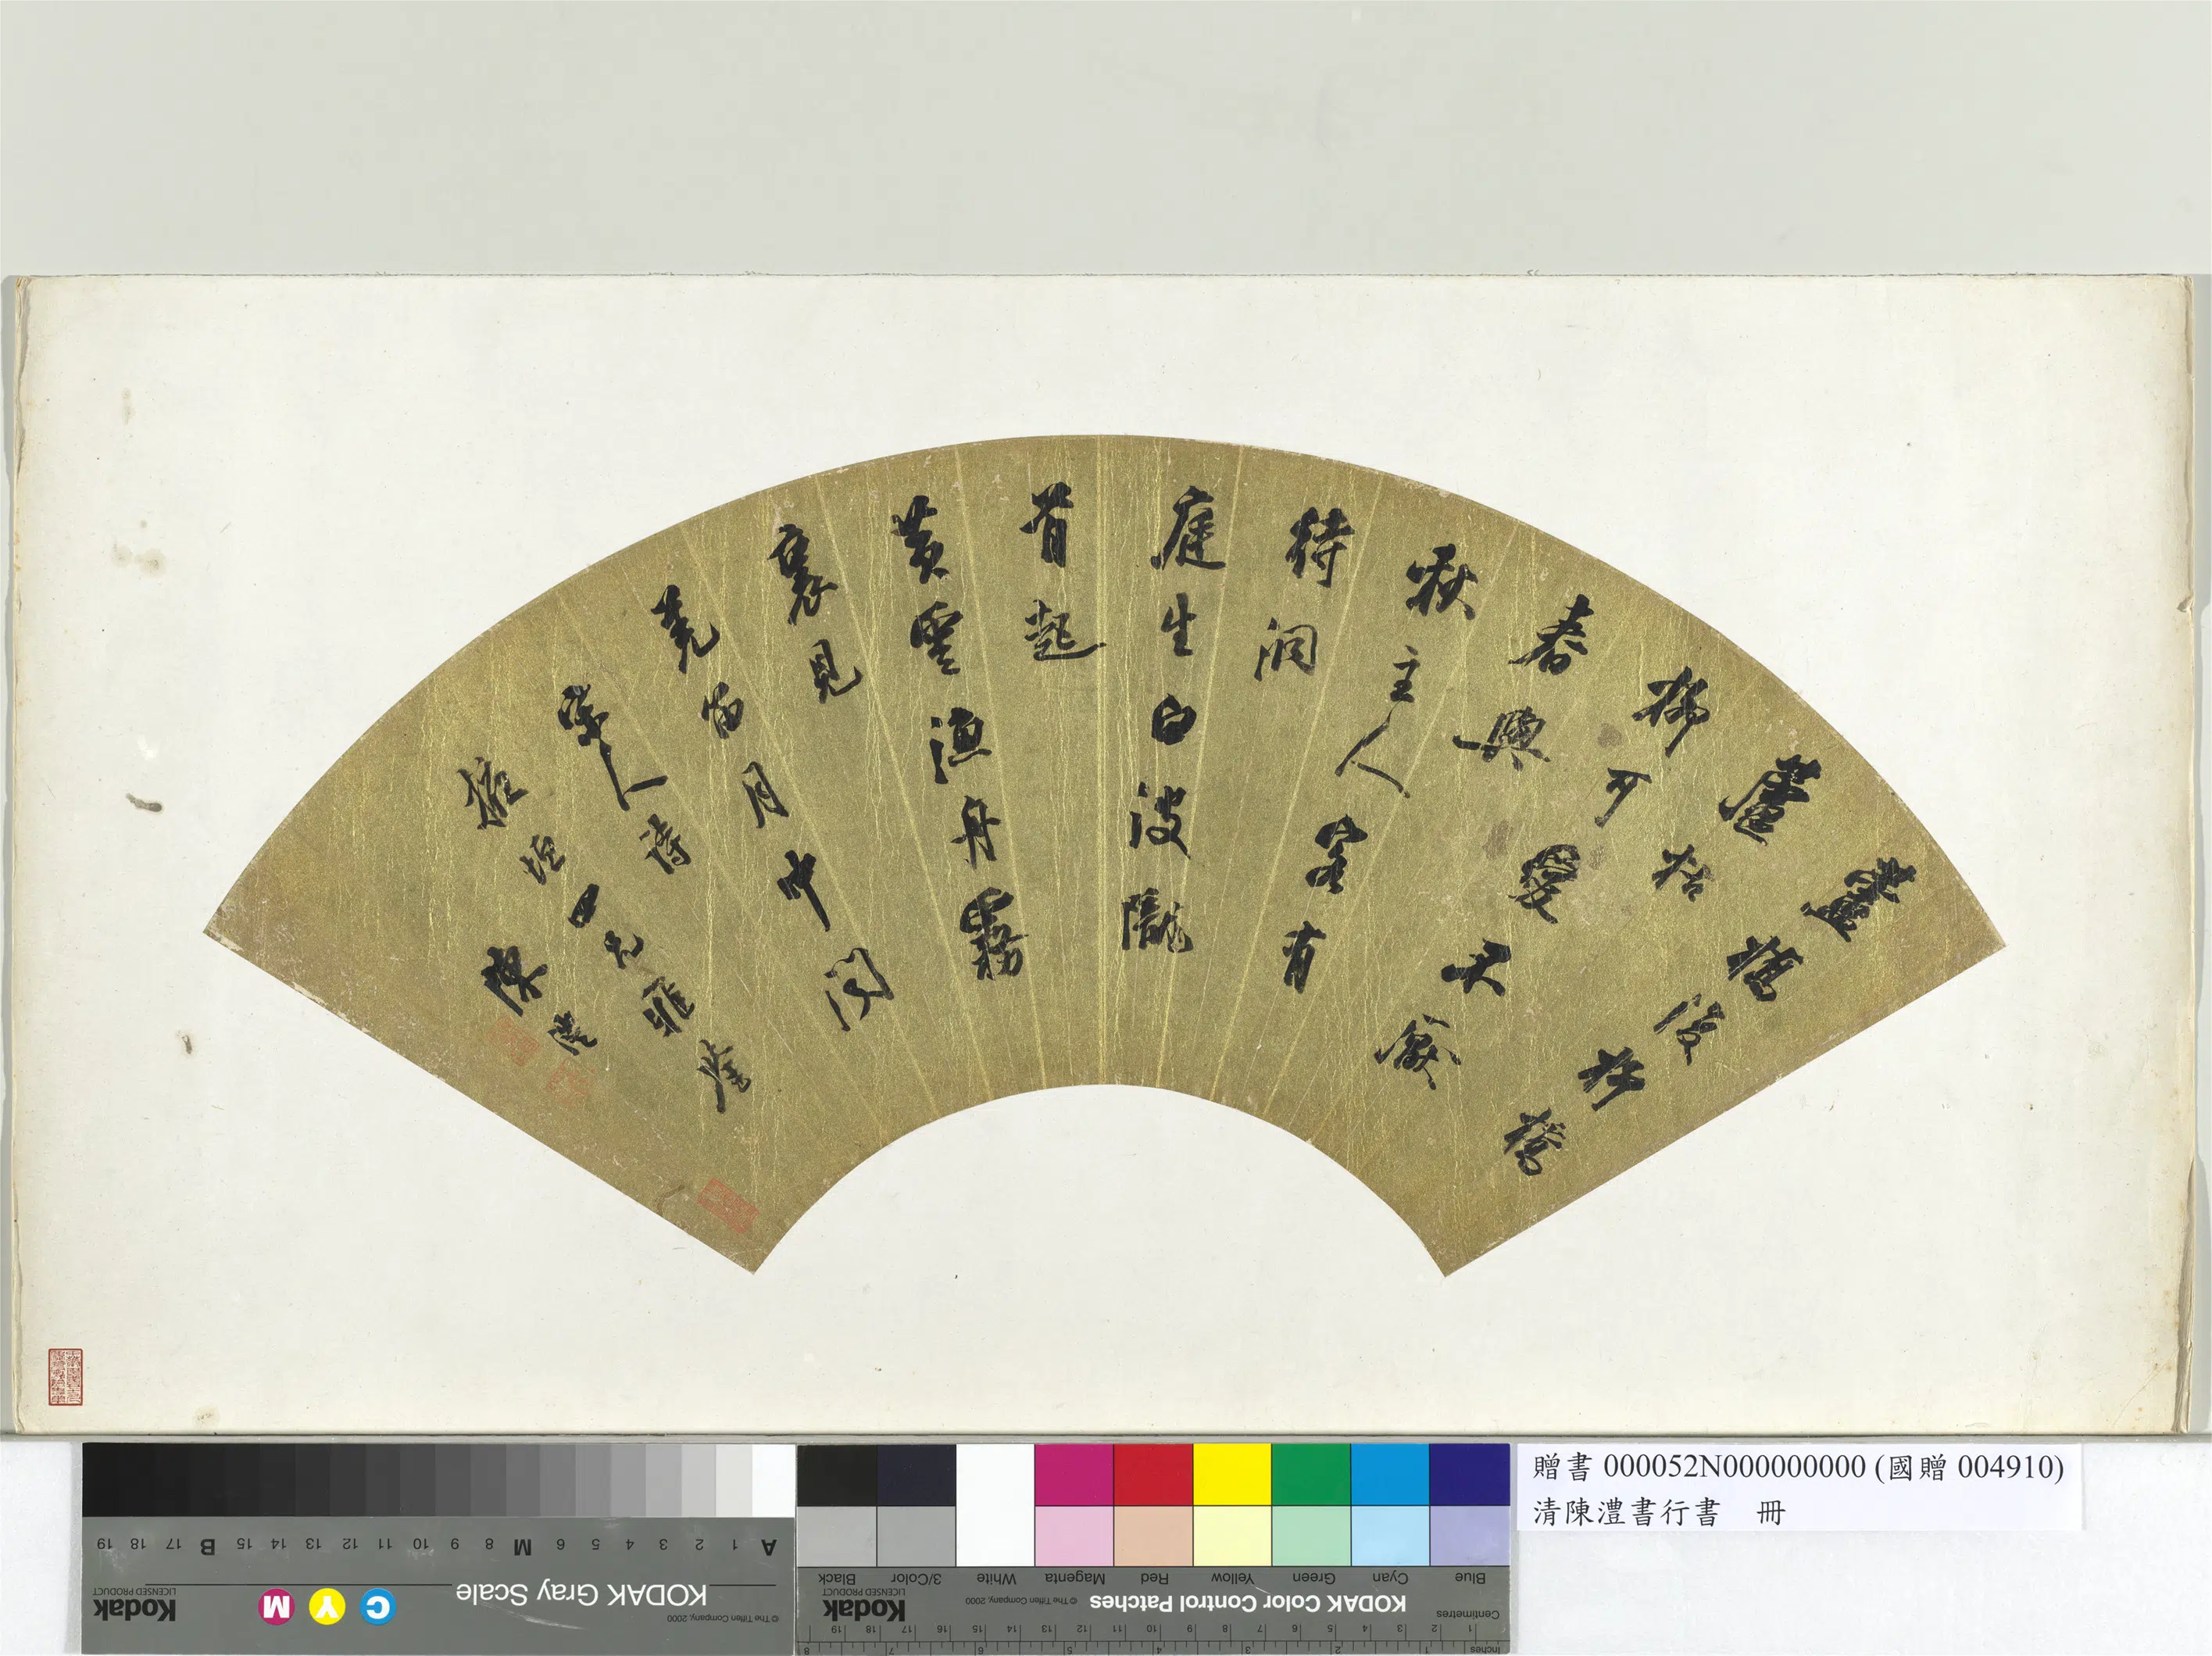 藝梅復移橘
蘆枯
柳可愛不厭
春與
秋主人客有
待洞
庭生白波隴
首起
黃雲漁舟霧
裏見
羌笛月中聞
宋人詩
振垣二兄雅屬
陳澧
贈書 000052N000000000 (國贈 004910)
清陳澧書行書 冊
KODAK Gray Scale
Kodak
LICENSED PRODUCT
© The Tiffen Company, 2000
C Y M
A 1 2 3 4 5 6 M 8 9 10 11 12 13 14 15 B 17 18 19
KODAK Color Control Patches
Kodak
LICENSED PRODUCT
© The Tiffen Company, 2000
Blue Cyan Green Yellow Red Magenta White 3/Color Black
Centimetres
Inches